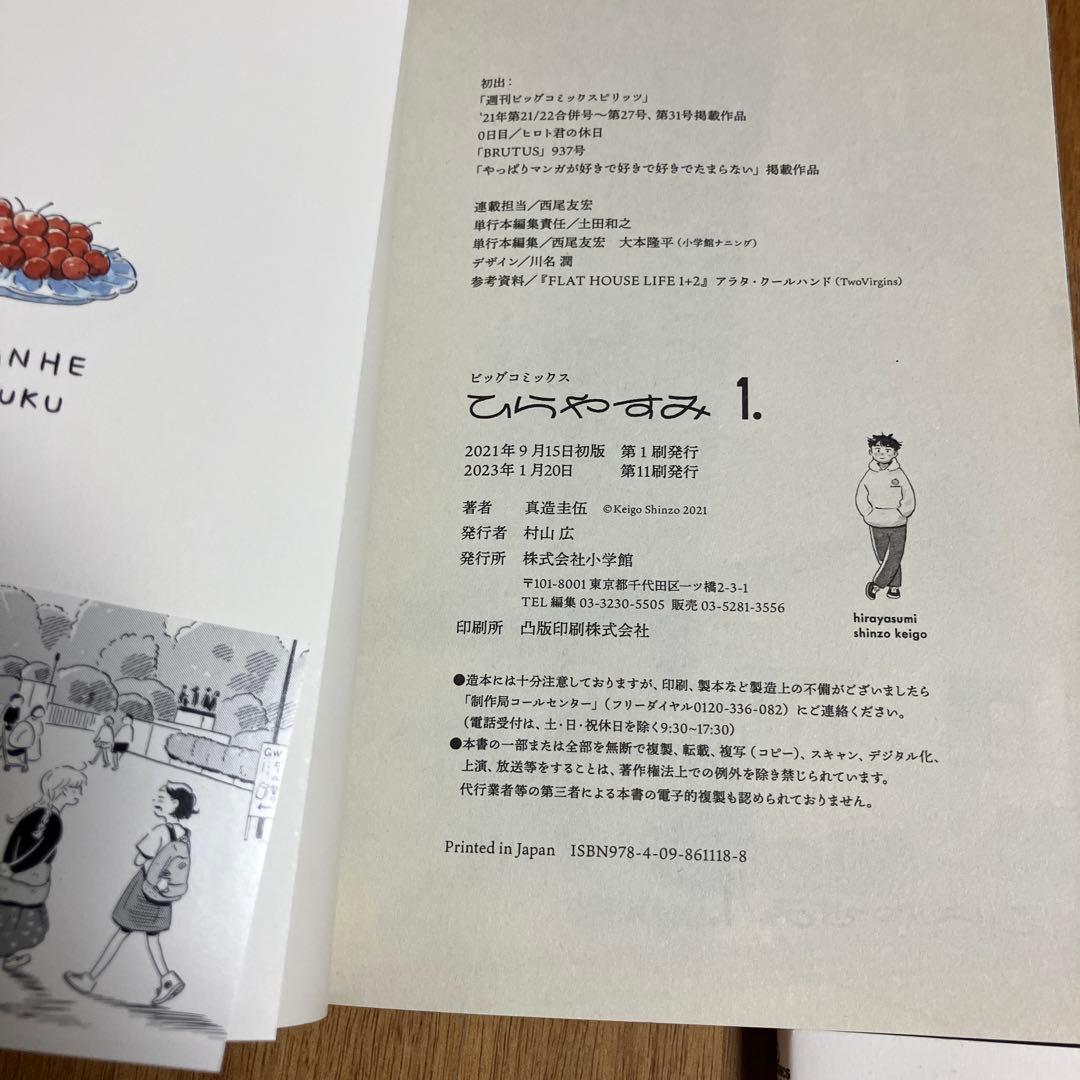 NHE
UKU
GW
初出：
「週刊ビッグコミックスピリッツ」
'21年第21/22合併号〜第27号、第31号掲載作品
0日目／ヒロト君の休日
「BRUTUS」937号
「やっぱりマンガが好きで好きで好きでたまらない」掲載作品
連載担当／西尾友宏
単行本編集責任／土田和之
単行本編集／西尾友宏　大本隆平（小学館ナニング）
デザイン／川名 潤
参考資料／『FLAT HOUSE LIFE 1+2』アラタ・クールハンド（TwoVirgins）
ビッグコミックス
ひらやすみ 1.
2021年9月15日初版　第1刷発行
2023年1月20日　第11刷発行
著者　真造圭伍　©Keigo Shinzo 2021
発行者　村山 広
発行所　株式会社小学館
〒101-8001 東京都千代田区一ツ橋2-3-1
TEL 編集 03-3230-5505 販売 03-5281-3556
印刷所　凸版印刷株式会社
hirayasumi
shinzo keigo
●造本には十分注意しておりますが、印刷、製本など製造上の不備がございましたら
「制作局コールセンター」（フリーダイヤル0120-336-082）にご連絡ください。
（電話受付は、土・日・祝休日を除く9:30~17:30）
●本書の一部または全部を無断で複製、転載、複写（コピー）、スキャン、デジタル化、
上演、放送等をすることは、著作権法上での例外を除き禁じられています。
代行業者等の第三者による本書の電子的複製も認められておりません。
Printed in Japan　ISBN978-4-09-861118-8